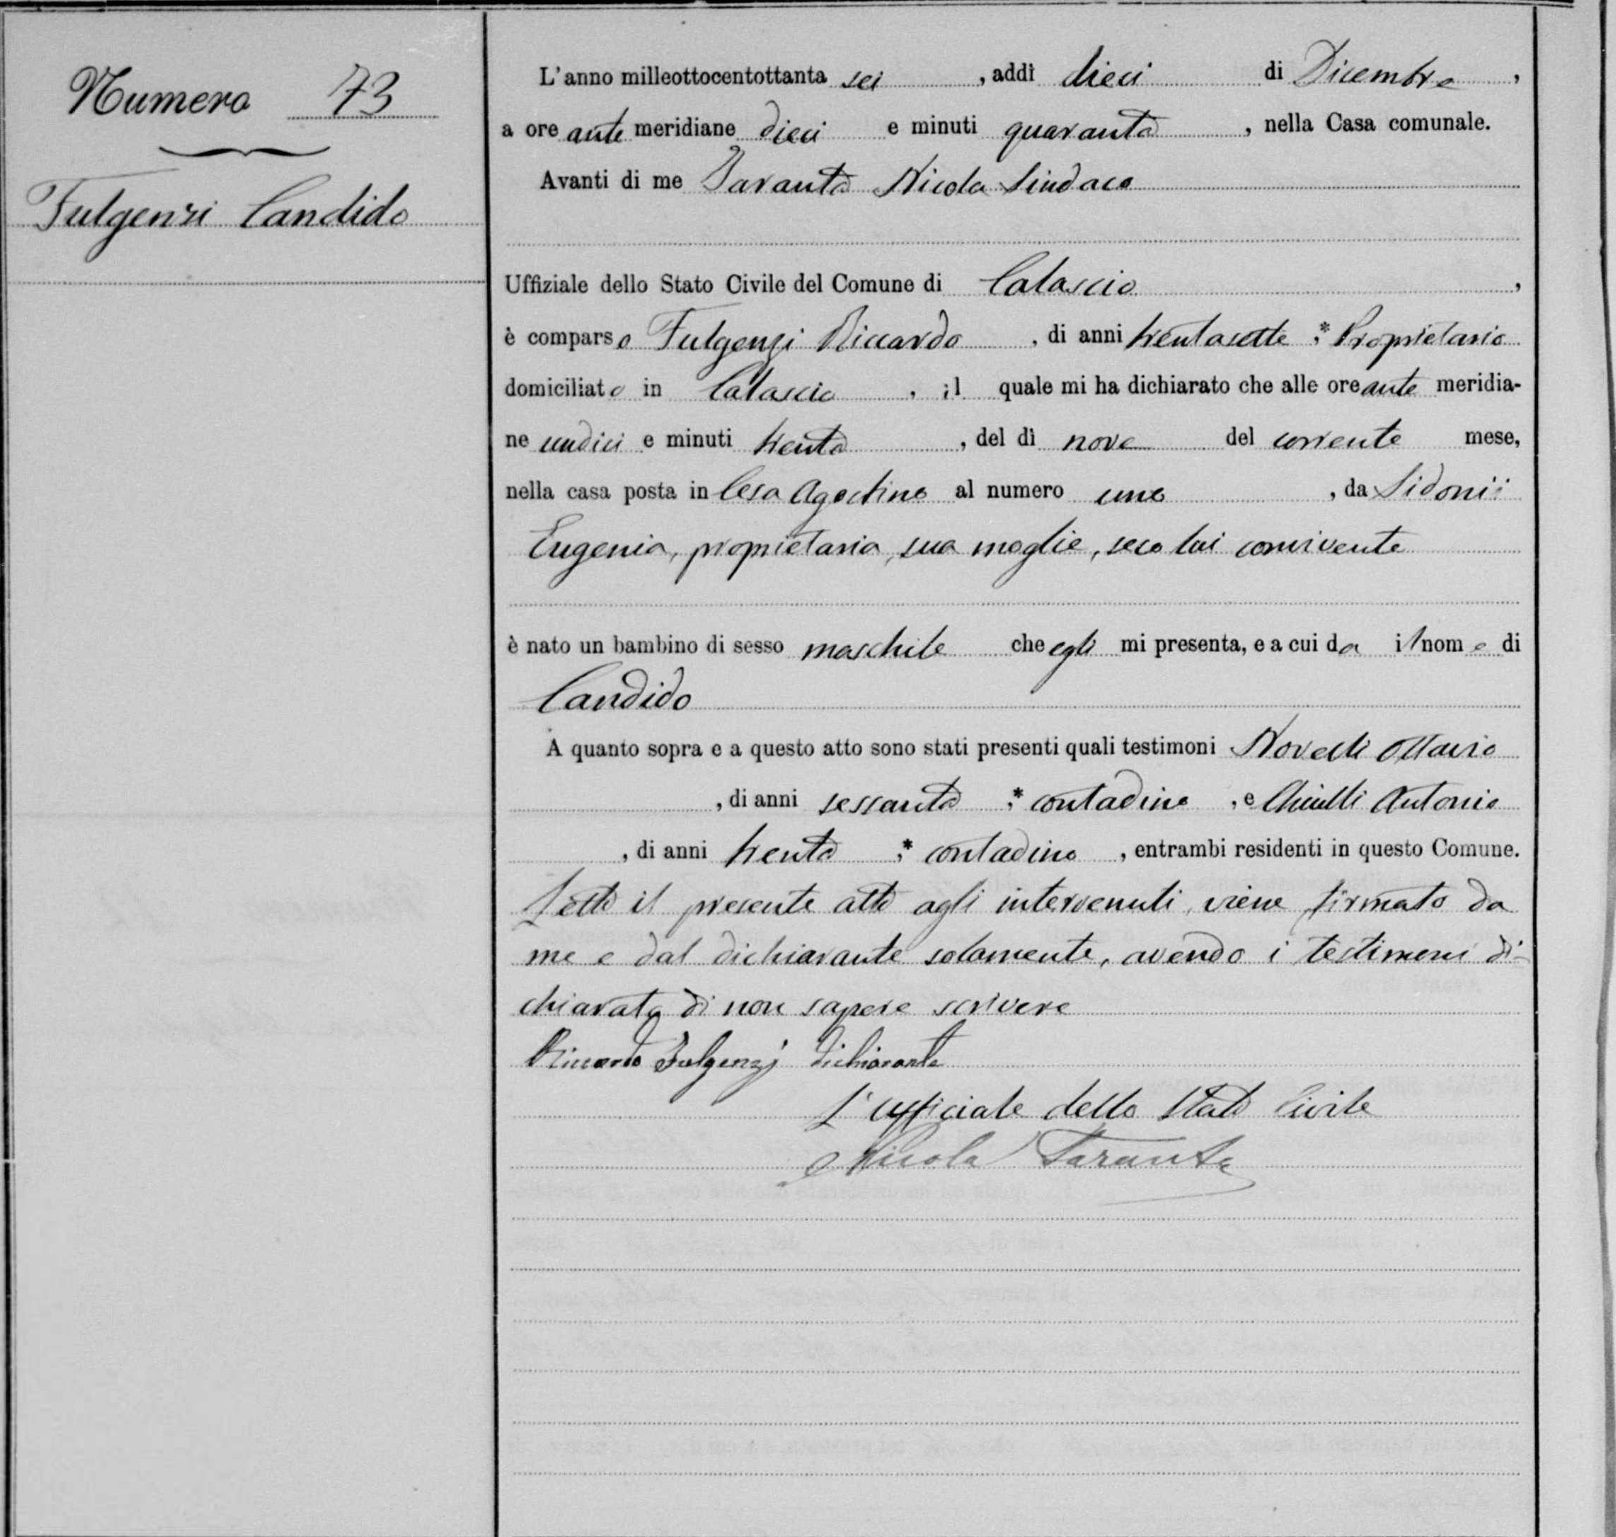 Numero 73
Fulgenzi Candido
L'anno milleottocentottanta sei, addì dieci di Dicembre,
a ore ante meridiane dieci e minuti quaranta, nella Casa comunale.
Avanti di me Taranta Nicola Sindaco
Uffiziale dello Stato Civile del Comune di Calascio,
è comparso Fulgenzi Riccardo, di anni trentasette, * Proprietario
domiciliato in Calascio, il quale mi ha dichiarato che alle ore ante meridia-
ne undici e minuti trenta, del dì nove del corrente mese,
nella casa posta in Cesa Agostino al numero uno, da Sidonii
Eugenia, proprietaria, sua moglie, seco lui convivente
è nato un bambino di sesso maschile che egli mi presenta, e a cui da il nome di
Candido
A quanto sopra e a questo atto sono stati presenti quali testimoni Novelli Ottavio
, di anni sessanta, * contadino, e Chiulli Antonio
, di anni trenta, * contadino, entrambi residenti in questo Comune.
Letto il presente atto agli intervenuti, viene firmato da
me e dal dichiarante solamente, avendo i testimoni di-
chiarato di non sapere scrivere
Riccardo Fulgenzj dichiarante
L'ufficiale dello Stato Civile
Nicola Taranta